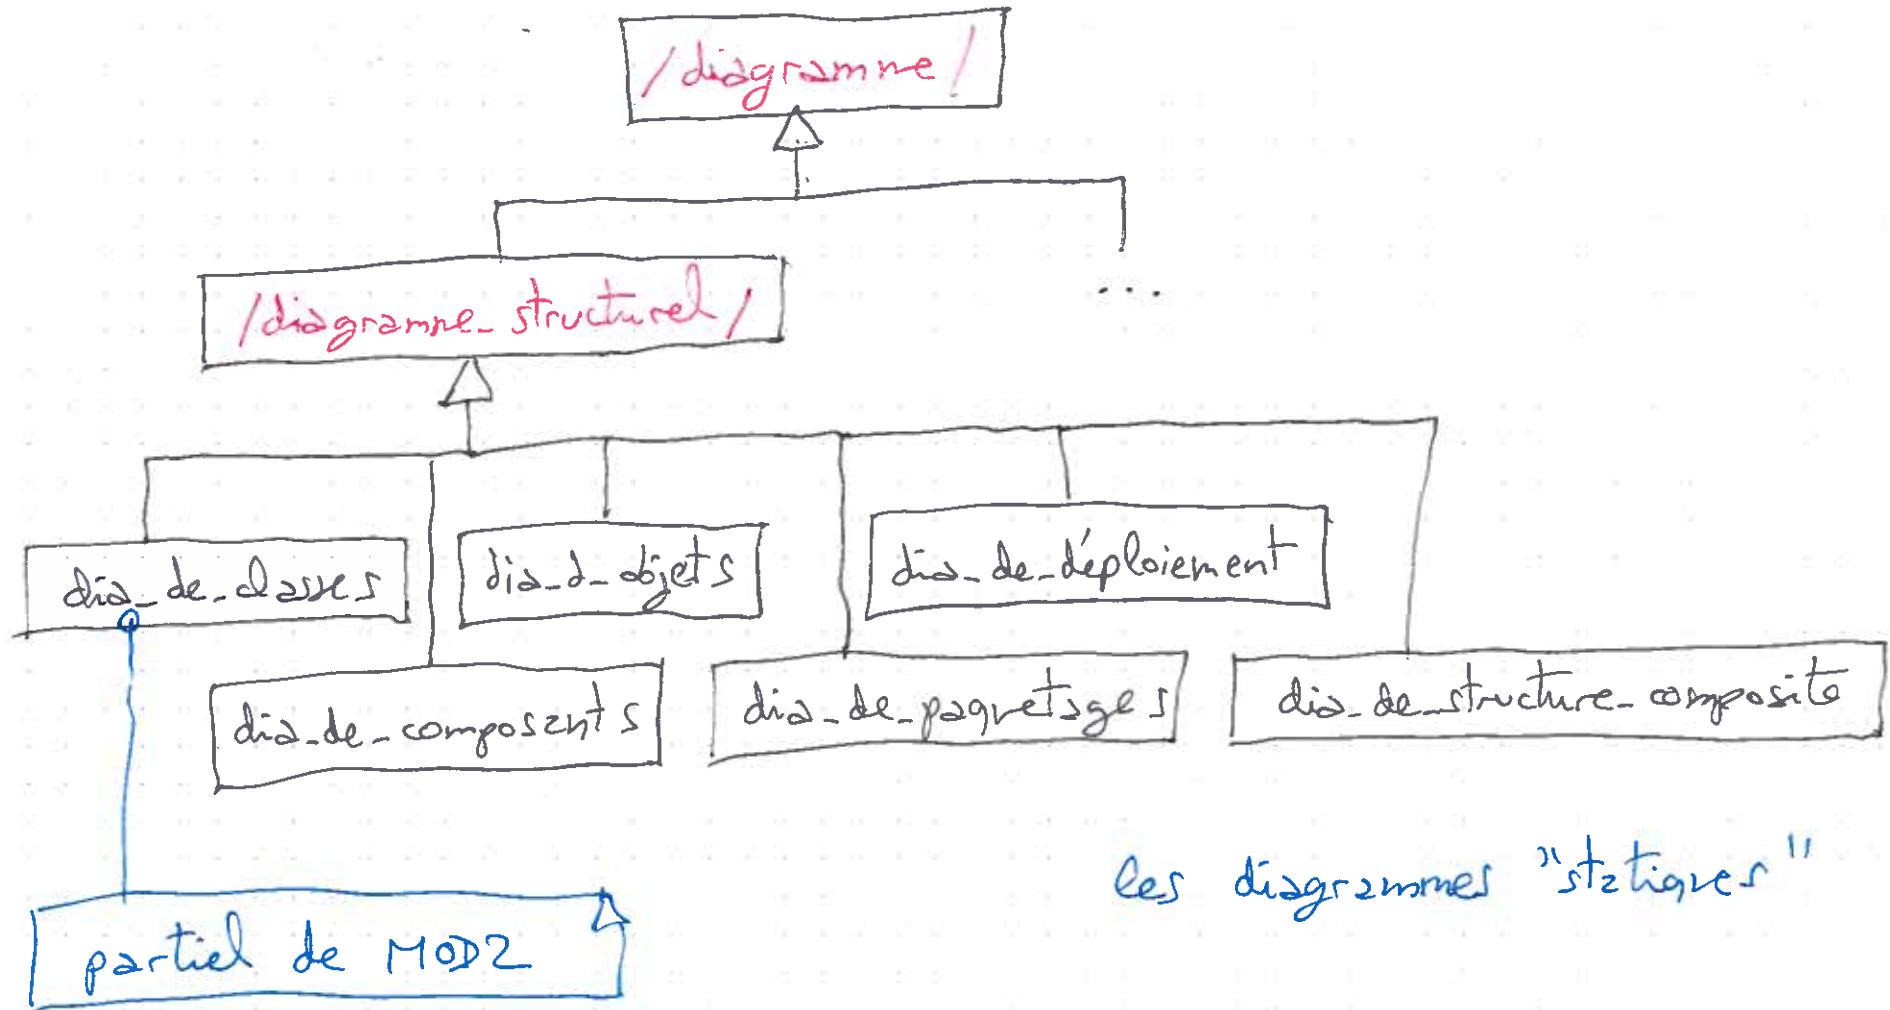 /diagramme/
/diagramme_structurel/
...
dia_de_classes
dia_d_objets
dia_de_déploiement
dia_de_composants
dia_de_paquetages
dia_de_structure_composite
les diagrammes "statiques"
partiel de MOD2